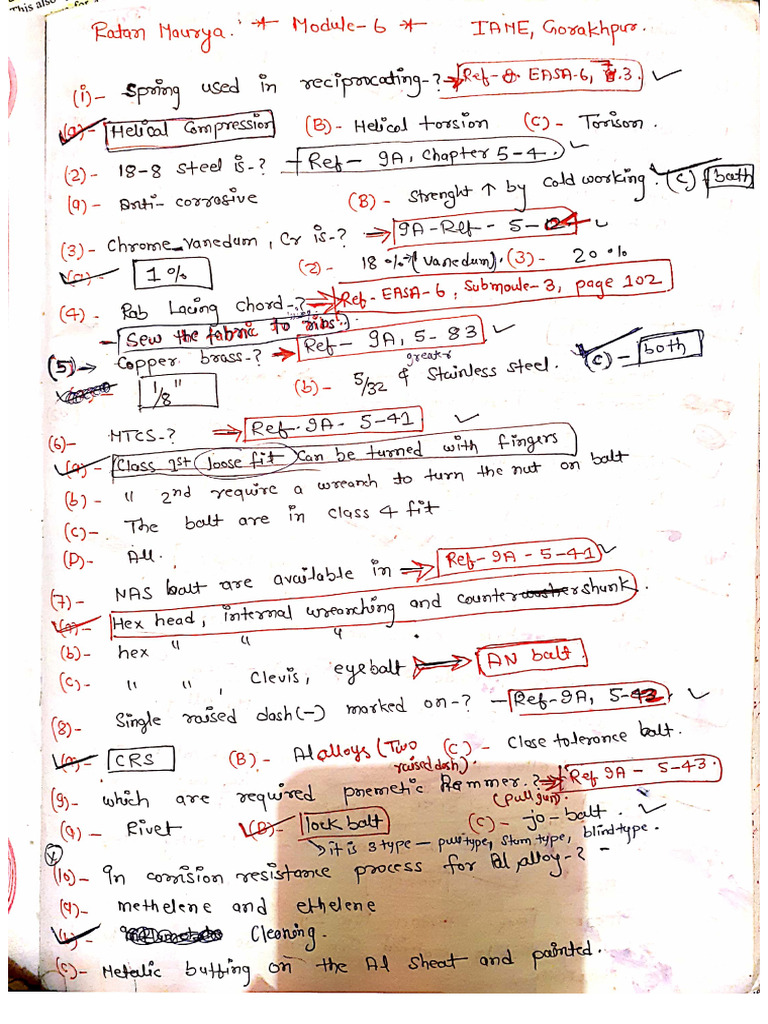 This also
Ratan Maurya. * Module-6 * IAME, Gorakhpur.
(i)- Spring used in reciprocating-? → Ref-8. EASA-6, 7.3. ✓
(a)- Helical Compression (B)- Helical torsion (C)- Torison.
(2)- 18-8 steel is-? → Ref- 9A, Chapter 5-4. ✓
(a)- Anti-corrosive (B)- Strenght ↑ by cold working. (C) both
(3)- Chrome vanedum, Cr is-? ⇒ 9A-Ref-5-04 ✓
(a)- 1% (2)- 18% → (vanedum). (3)- 20%
(4)- Rab Lacing chord-? ⇒ Ref-EASA-6, submoule-3, page 102
- Sew the fabric to ribs.
(5) → Copper brass-? → Ref- 9A, 5-83 ✓
1/8" (b)- 5/32 & greater Stainless steel. (C)- both
(6)- MTCS-? ⇒ Ref-9A-5-41 ✓
(a)- Class 1st loose fit can be turned with fingers
(b)- " 2nd require a wreanch to turn the nut on balt
(C)- The balt are in class 4 fit
(D)- All.
(7)- NAS balt are available in ⇒ Ref-9A-5-41 ✓
(a)- Hex head, internal wreanching and countershunk.
(b)- hex " " " .
(C)- " " , Clevis, eyebalt → AN balt.
(8)- Single raised dash(-) marked on-? - Ref-9A, 5-42, ✓
(a)- CRS (B)- Al alloys (Two raised dash). (C)- Close tolerance balt.
(9)- which are required pnemetic Hammer.? ⇒ Ref 9A-5-43.
(a)- Rivet (B)- lock balt (Pull gun). (C)- jo-balt. ✓
it is 3 type - pull type, stum type, blind type.
(10)- In corrision resistance process for Al alloy-? -
(a)- methelene and ethelene
(b)- Cleaning.
(C)- Metalic buffing on the Al sheat and painted.